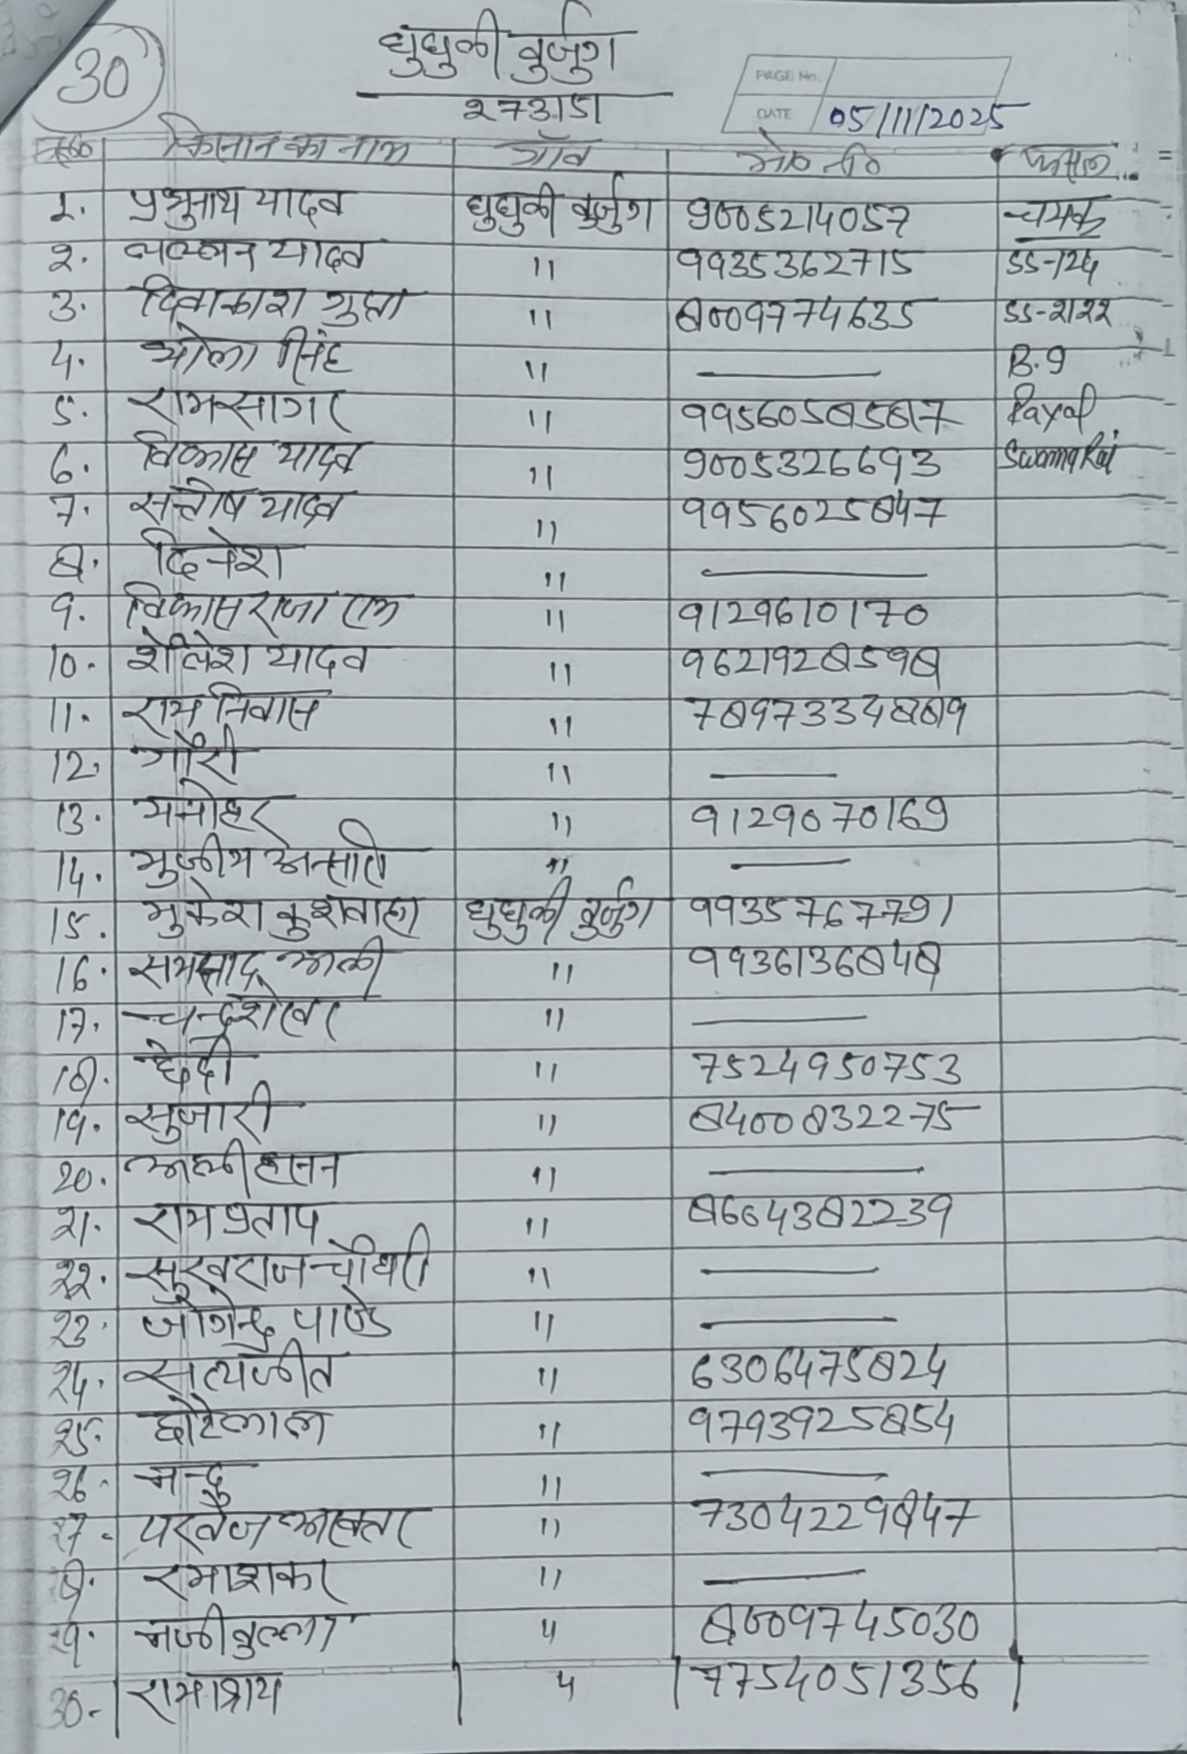 30
घुघुली बुर्जुग
२७३१५१
PAGE No.
DATE 05/11/2025
क्र० किसान का नाम गाँव मो० नं० फसल
1. प्रभुनाथ यादव घुघुली बुर्जुग 9005214057 चमक
२. लल्लन यादव 11 9935362715 SS-124
3. दिवाकाश गुप्ता 11 8009774635 SS-2122
4. भोला सिंह 11 — B.9
5. रामसागर 11 9956058587 Payal
6. विकास यादव 11 9005326693 Swarna Rai
7. सन्तोष यादव 11 9956025847
8. दिनेश 11 —
9. विकास राजा एक 11 9129610170
10. शैलेश यादव 11 9621928598
11. राम निवास 11 7897334889
12. गौरी 11 —
13. मनोहर 11 9129070169
14. मुजीम अन्सारी 11 —
15. मुकेश कुशवाहा घुघुली बुर्जुग 9935767791
16. समसाद अली 11 9936136848
17. चन्द्रशेखर 11 —
18. छेदी 11 7524950753
19. सुजारी 11 8400832275
20. अलीहसन 11 —
२1. राम प्रताप 11 8664382239
२२. सुखराज चौधरी 11 —
२3. जोगेन्द्र पाण्डे 11 —
२4. सत्यजीत 11 6306475824
२5. छोटेलाल 11 9793925854
२6. नन्दु 11 —
२7. परवेज अख्तर 11 7304229847
२8. रमाशंकर 11 —
२9. नजीबुल्ला 11 8009745030
30. रामाश्रय 11 7754051356